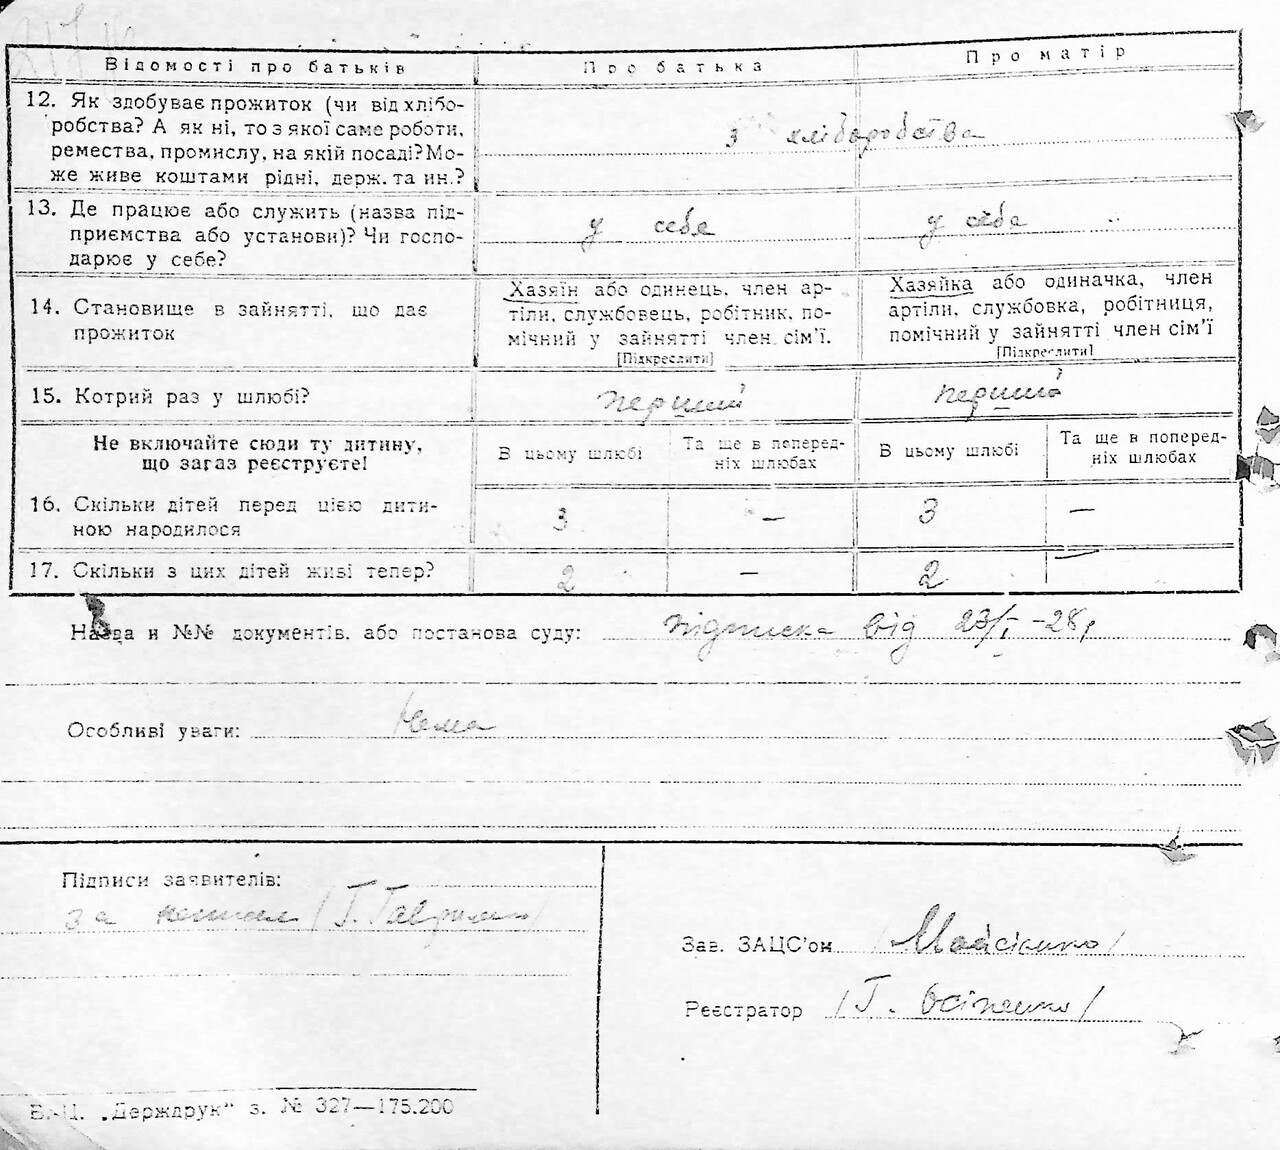 Відомості про батьків Про батька Про матір
12. Як здобуває прожиток (чи від хлібо-
робства? А як ні, то з якої саме роботи,
ремества, промислу, на якій посаді? Мо-
же живе коштами рідні, держ. та ин.?
з хліборобства
13. Де працює або служить (назва під-
приємства або установи)? Чи госпо-
дарює у себе?
у себе у себе
14. Становище в зайнятті, що дає
прожиток
Хазяїн або одинець, член ар-
тіли, службовець, робітник, по-
мічний у зайнятті член сім'ї.
[Підкреслити]
Хазяйка або одиначка, член
артіли, службовка, робітниця,
помічний у зайнятті член сім'ї
[Підкреслити]
15. Котрий раз у шлюбі? перший перший
Не включайте сюди ту дитину,
що зараз реєструєте!
В цьому шлюбі
Та ще в поперед-
ніх шлюбах
В цьому шлюбі
Та ще в поперед-
ніх шлюбах
16. Скільки дітей перед цією дити-
ною народилося
3 — 3 —
17. Скільки з цих дітей живі тепер? 2 — 2 —
Назва и №№ документів, або постанова суду: підписка від 23/I-28р
Особливі уваги: Нема
Підписи заявителів:
за /Г. Гаврилко/
Зав. ЗАЦС'ом
Реєстратор /Г. Осіпенко/
В.-Ц. „Держдрук" з. № 327—175.200